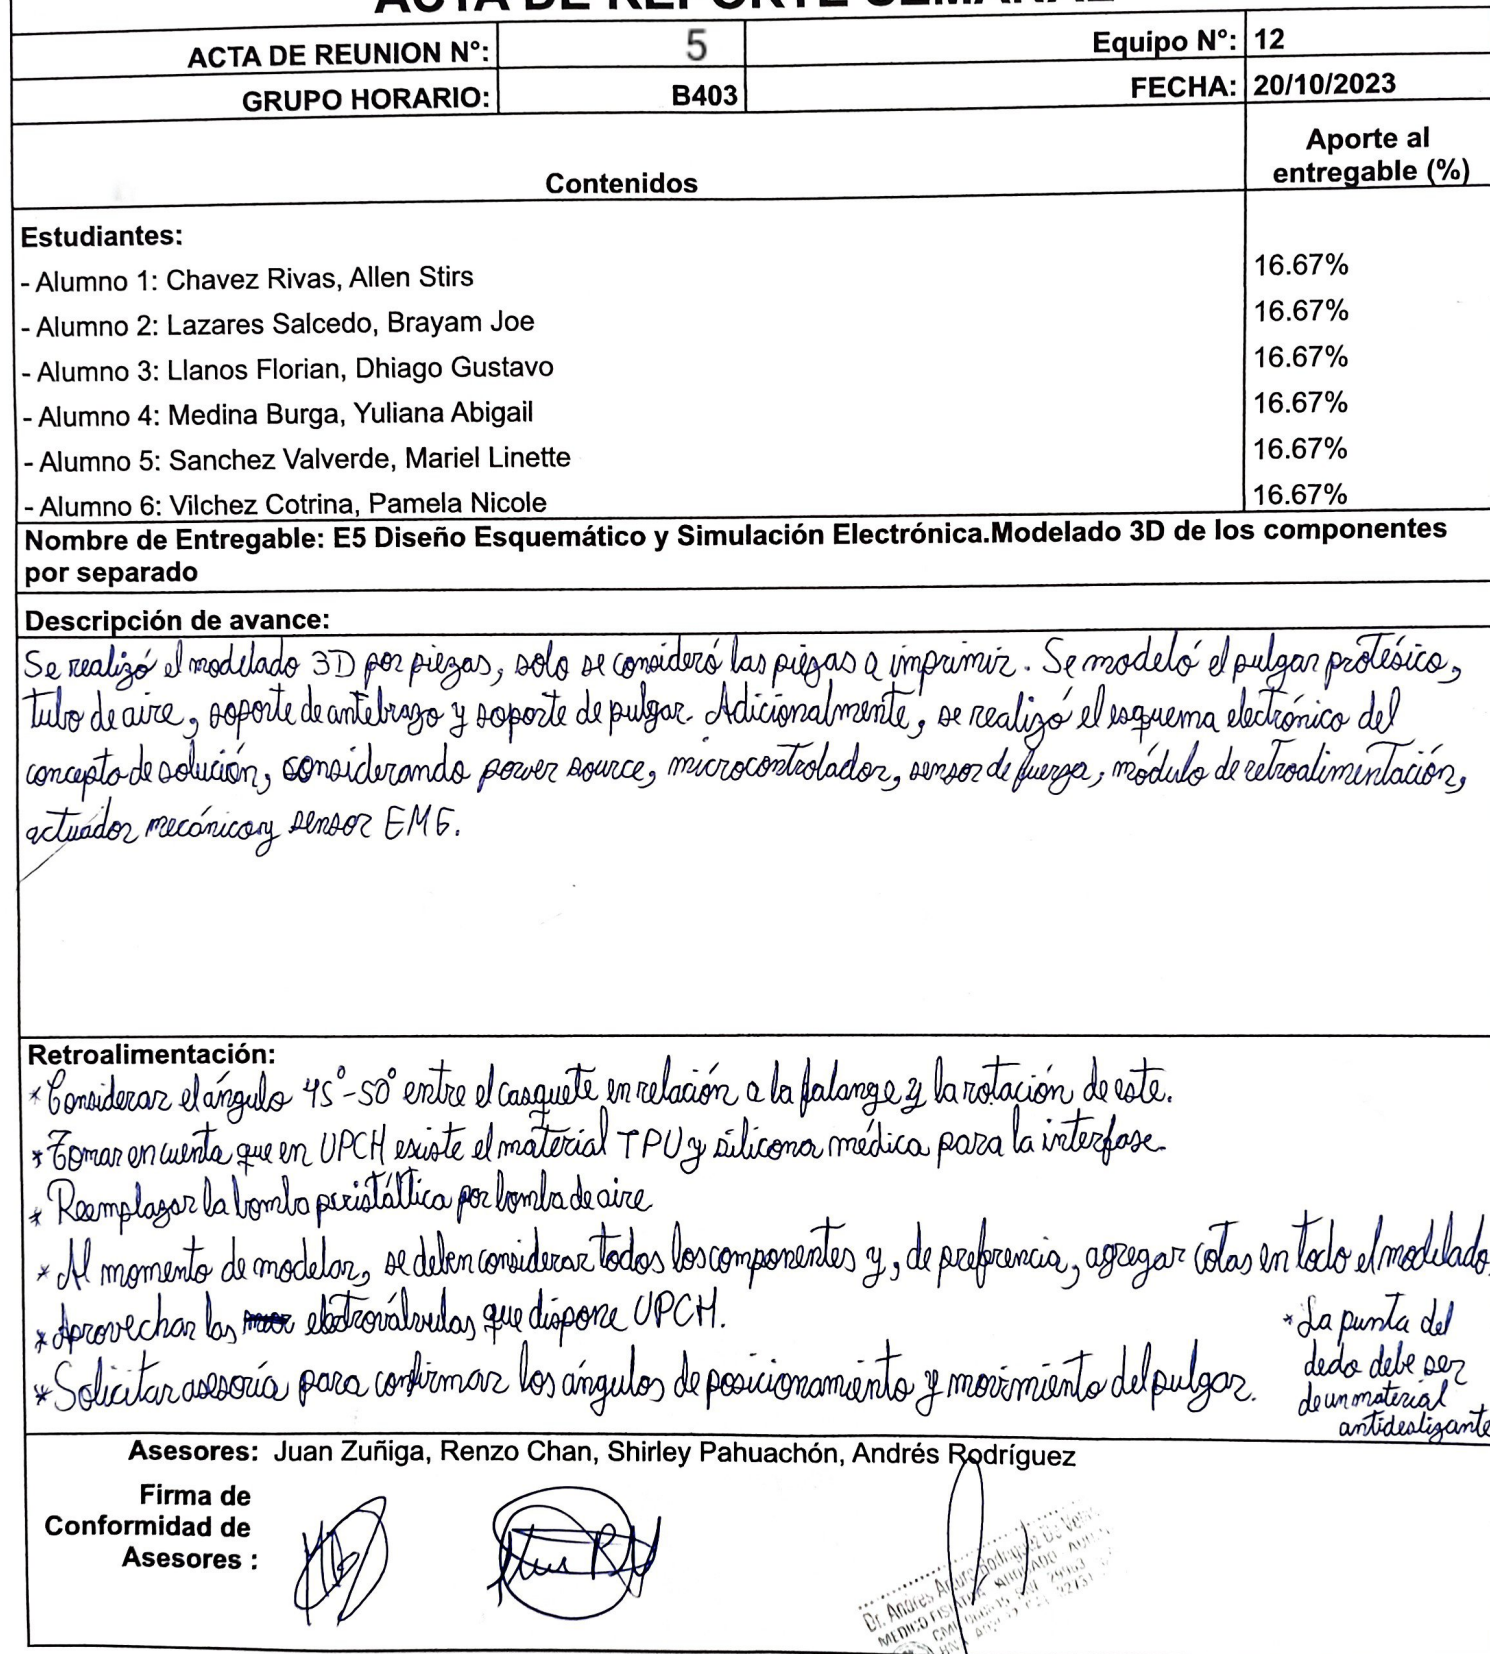 ACTA DE REPORTE SEMANAL
ACTA DE REUNION N°: 5 Equipo N°: 12
GRUPO HORARIO: B403 FECHA: 20/10/2023
Contenidos Aporte al entregable (%)
Estudiantes:
- Alumno 1: Chavez Rivas, Allen Stirs 16.67%
- Alumno 2: Lazares Salcedo, Brayam Joe 16.67%
- Alumno 3: Llanos Florian, Dhiago Gustavo 16.67%
- Alumno 4: Medina Burga, Yuliana Abigail 16.67%
- Alumno 5: Sanchez Valverde, Mariel Linette 16.67%
- Alumno 6: Vilchez Cotrina, Pamela Nicole 16.67%
Nombre de Entregable: E5 Diseño Esquemático y Simulación Electrónica.Modelado 3D de los componentes
por separado
Descripción de avance:
Se realizó el modelado 3D por piezas, solo se consideró las piezas a imprimir. Se modeló el pulgar protésico,
tubo de aire, soporte de antebrazo y soporte de pulgar. Adicionalmente, se realizó el esquema electrónico del
concepto de solución, considerando power source, microcontrolador, sensor de fuerza, módulo de retroalimentación,
actuador mecánico y sensor EMG.
Retroalimentación:
* Considerar el ángulo 45°-50° entre el casquete en relación a la falange y la rotación de este.
* Tomar en cuenta que en UPCH existe el material TPU y silicona médica para la interfase.
* Reemplazar la bomba peristáltica por bomba de aire
* Al momento de modelar, se deben considerar todos los componentes y, de preferencia, agregar cotas en todo el modelado.
* Aprovechar las electroválvulas que dispone UPCH.
* Solicitar asesoría para confirmar los ángulos de posicionamiento y movimiento del pulgar.
* La punta del
dedo debe ser
de un material
antideslizante
Asesores: Juan Zuñiga, Renzo Chan, Shirley Pahuachón, Andrés Rodríguez
Firma de
Conformidad de
Asesores :
Dr. Andres Arturo Rodriguez De
MEDICO